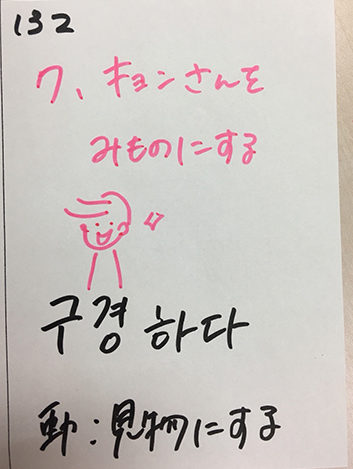 132
ク、キョンさんを
みものにする
구경 하다
動:見物にする